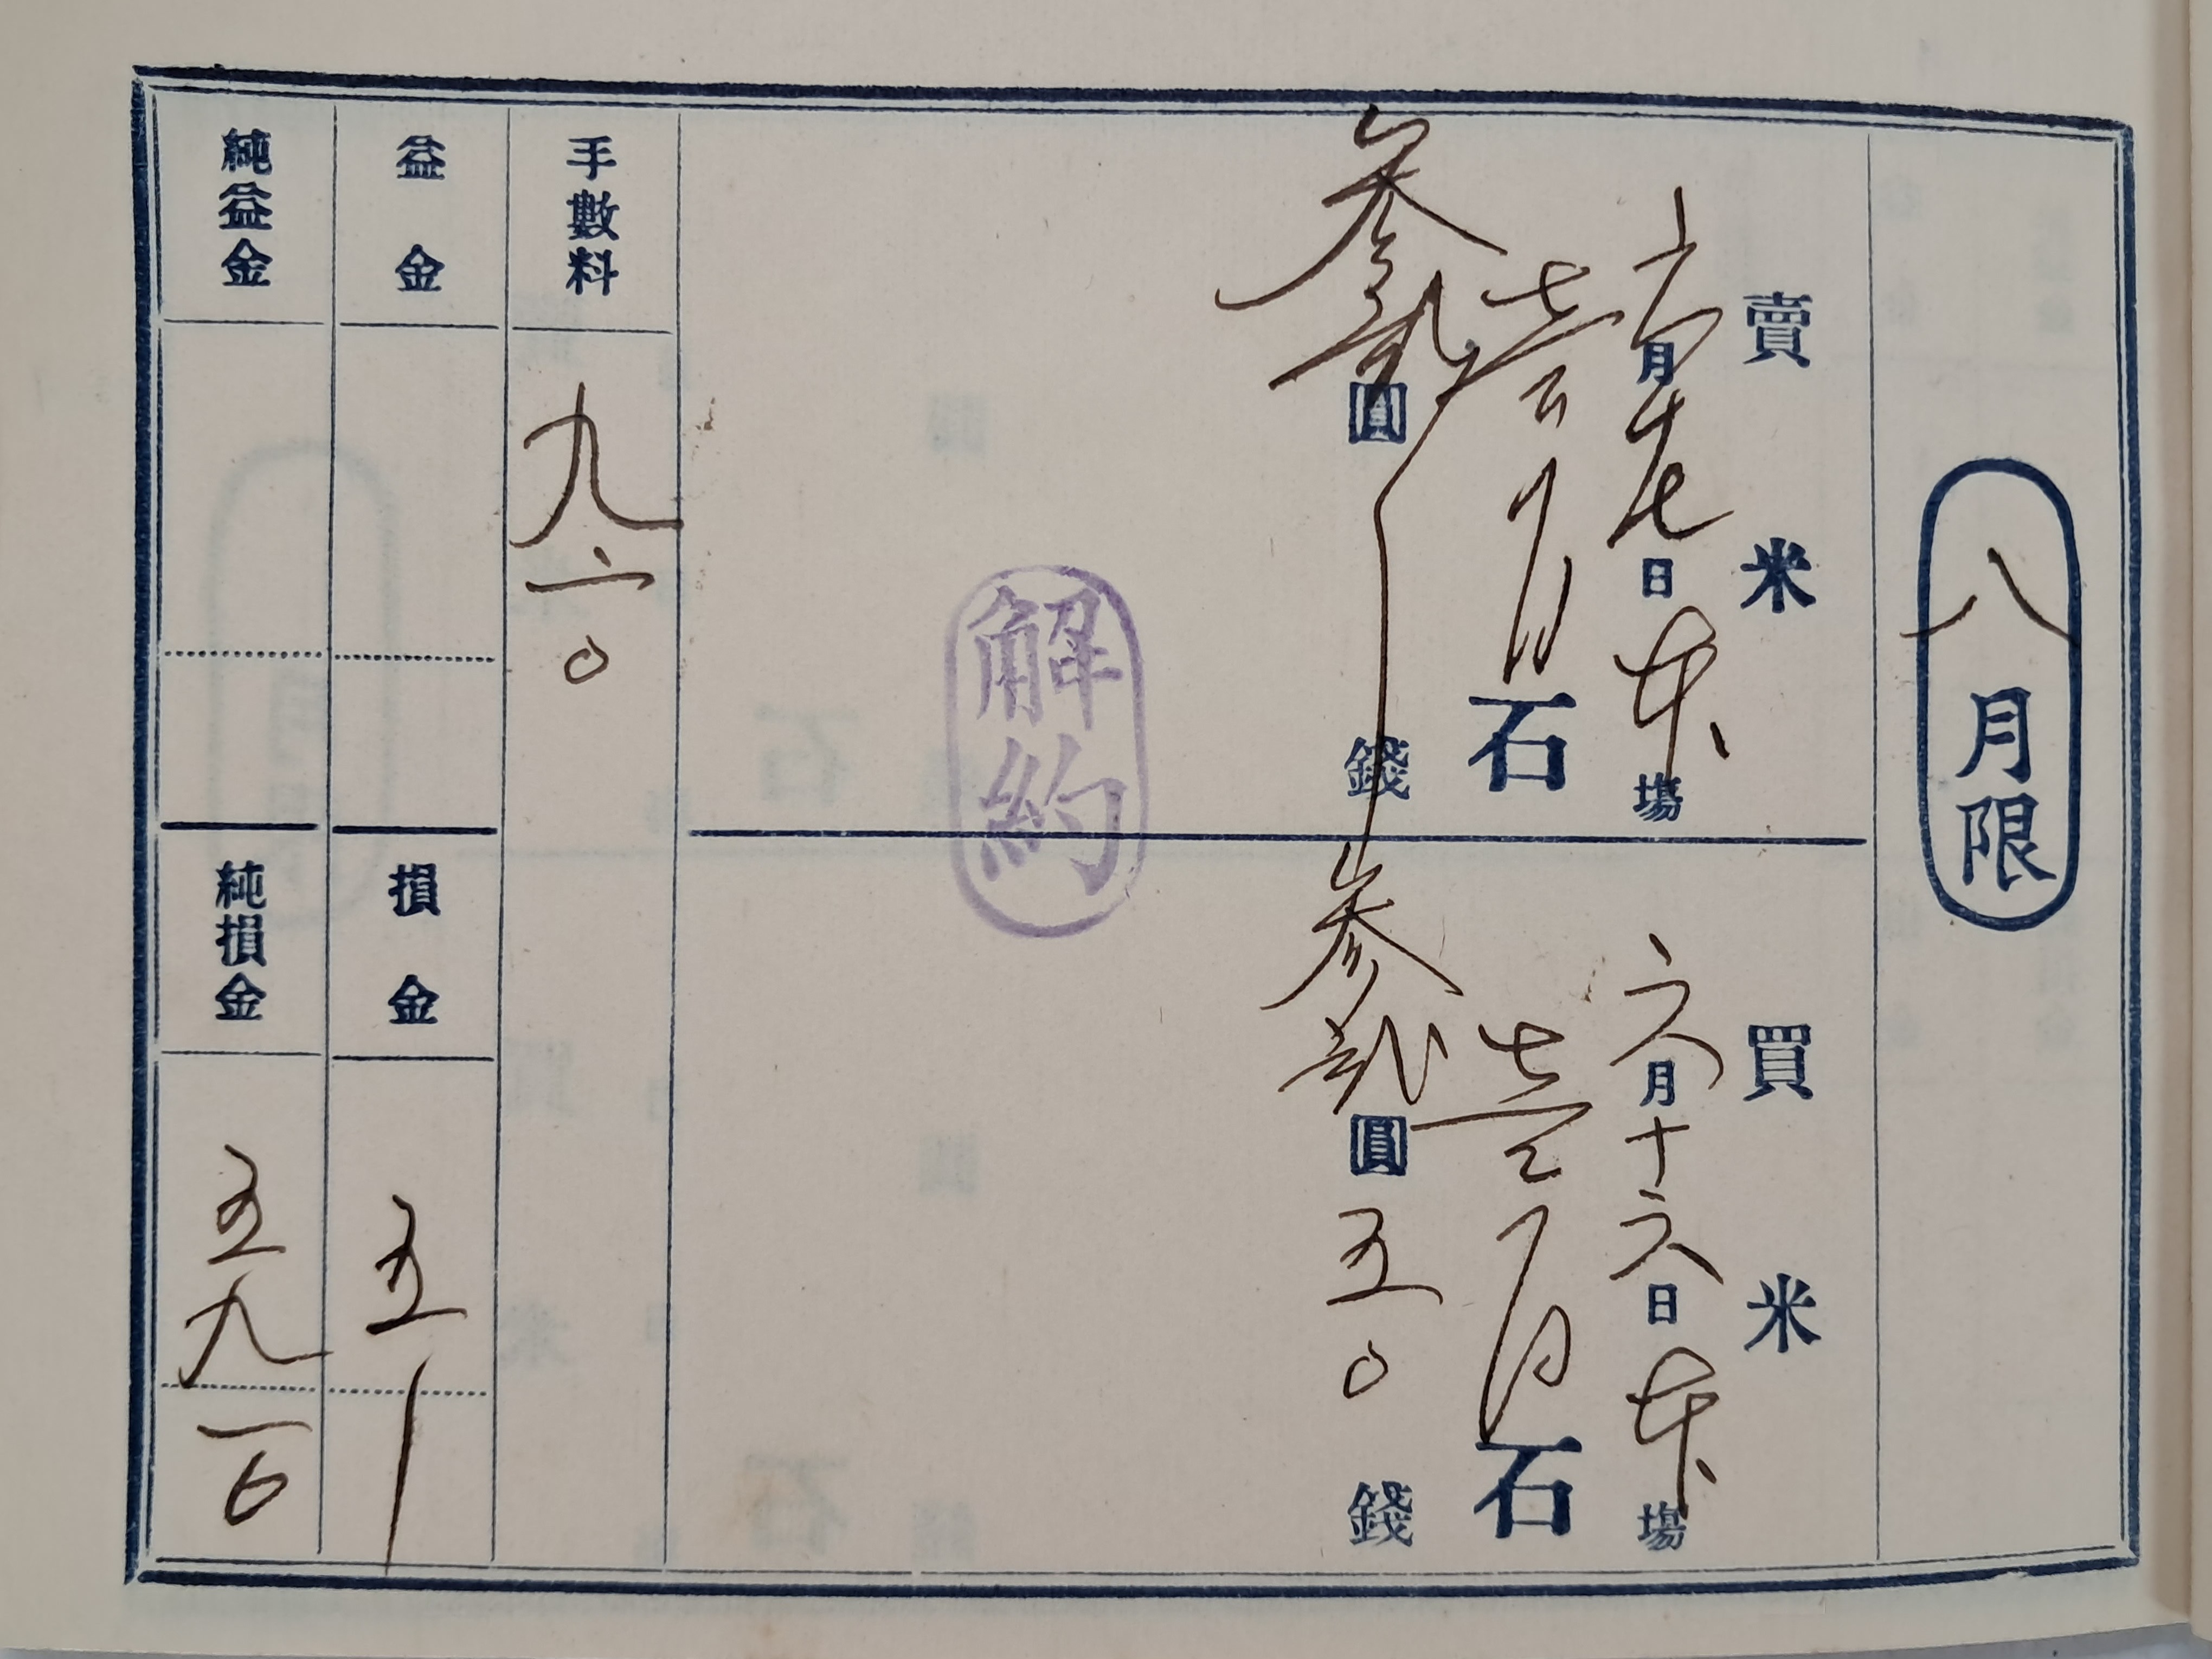 八月限
賣米
六月十七日本場
壹百石
参貳圓錢
買米
六月十六日本場
壹百石
参貳圓五〇錢
解約
手數料
九一〇
益金
損金
五
純益金
純損金
五九一〇